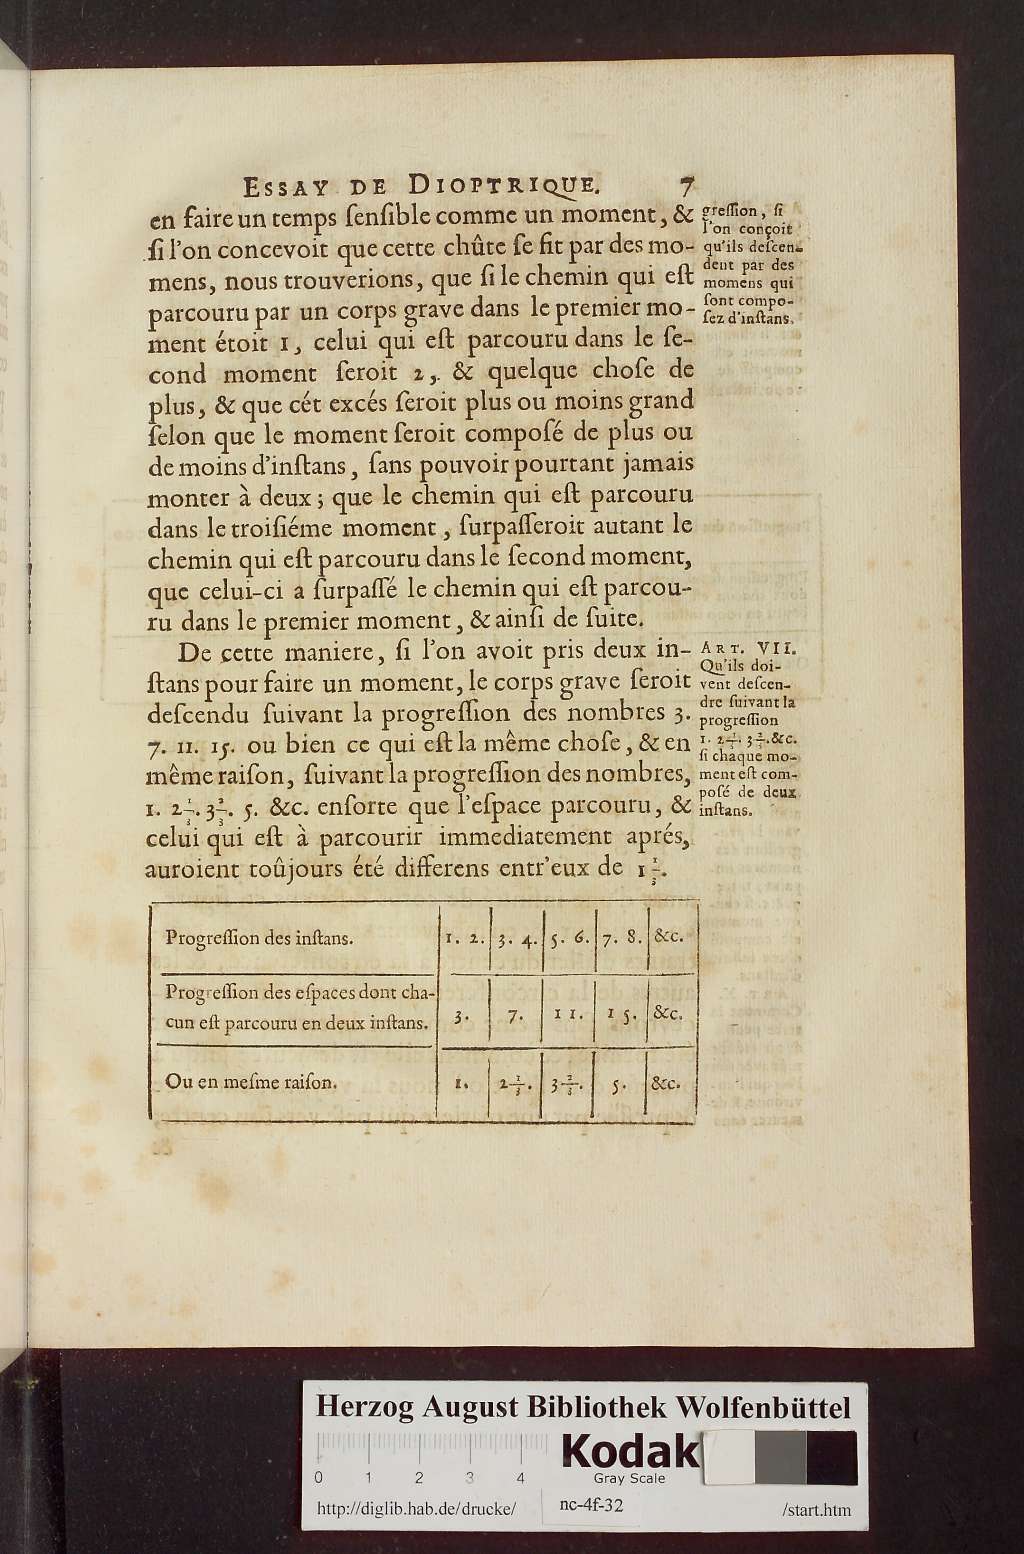 ESSAY DE DIOPTRIQUE. 7
en faire un temps ſenſible comme un moment, &
ſi l'on concevoit que cette chûte ſe fit par des mo-
mens, nous trouverions, que ſi le chemin qui eſt
parcouru par un corps grave dans le premier mo-
ment étoit 1, celui qui eſt parcouru dans le ſe-
cond moment ſeroit 2, & quelque choſe de
plus, & que cét excés ſeroit plus ou moins grand
ſelon que le moment ſeroit compoſé de plus ou
de moins d'inſtans, ſans pouvoir pourtant jamais
monter à deux; que le chemin qui eſt parcouru
dans le troiſiéme moment, ſurpaſſeroit autant le
chemin qui eſt parcouru dans le ſecond moment,
que celui-ci a ſurpaſſé le chemin qui eſt parcou-
ru dans le premier moment, & ainſi de ſuite.
greſſion, ſi
l'on conçoit
qu'ils deſcen-
dent par des
momens qui
ſont compo-
ſez d'inſtans.
De cette maniere, ſi l'on avoit pris deux in-
ſtans pour faire un moment, le corps grave ſeroit
deſcendu ſuivant la progreſſion des nombres 3.
7. 11. 15. ou bien ce qui eſt la même choſe, & en
même raiſon, ſuivant la progreſſion des nombres,
1. 2 1/3. 3 2/3. 5. &c. enſorte que l'eſpace parcouru, &
celui qui eſt à parcourir immediatement aprés,
auroient toûjours été differens entr'eux de 1 1/3.
ART. VII.
Qu'ils doi-
vent deſcen-
dre ſuivant la
progreſſion
1. 2 1/3. 3 2/3. &c.
ſi chaque mo-
ment eſt com-
poſé de deux
inſtans.
Progreſſion des inſtans. 1. 2. 3. 4. 5. 6. 7. 8. &c.
Progreſſion des eſpaces dont cha-
cun eſt parcouru en deux inſtans. 3. 7. 11. 15. &c.
Ou en meſme raiſon. 1. 2 1/3. 3 2/3. 5. &c.
Herzog August Bibliothek Wolfenbüttel
Kodak
Gray Scale
0 1 2 3 4
http://diglib.hab.de/drucke/ nc-4f-32 /start.htm